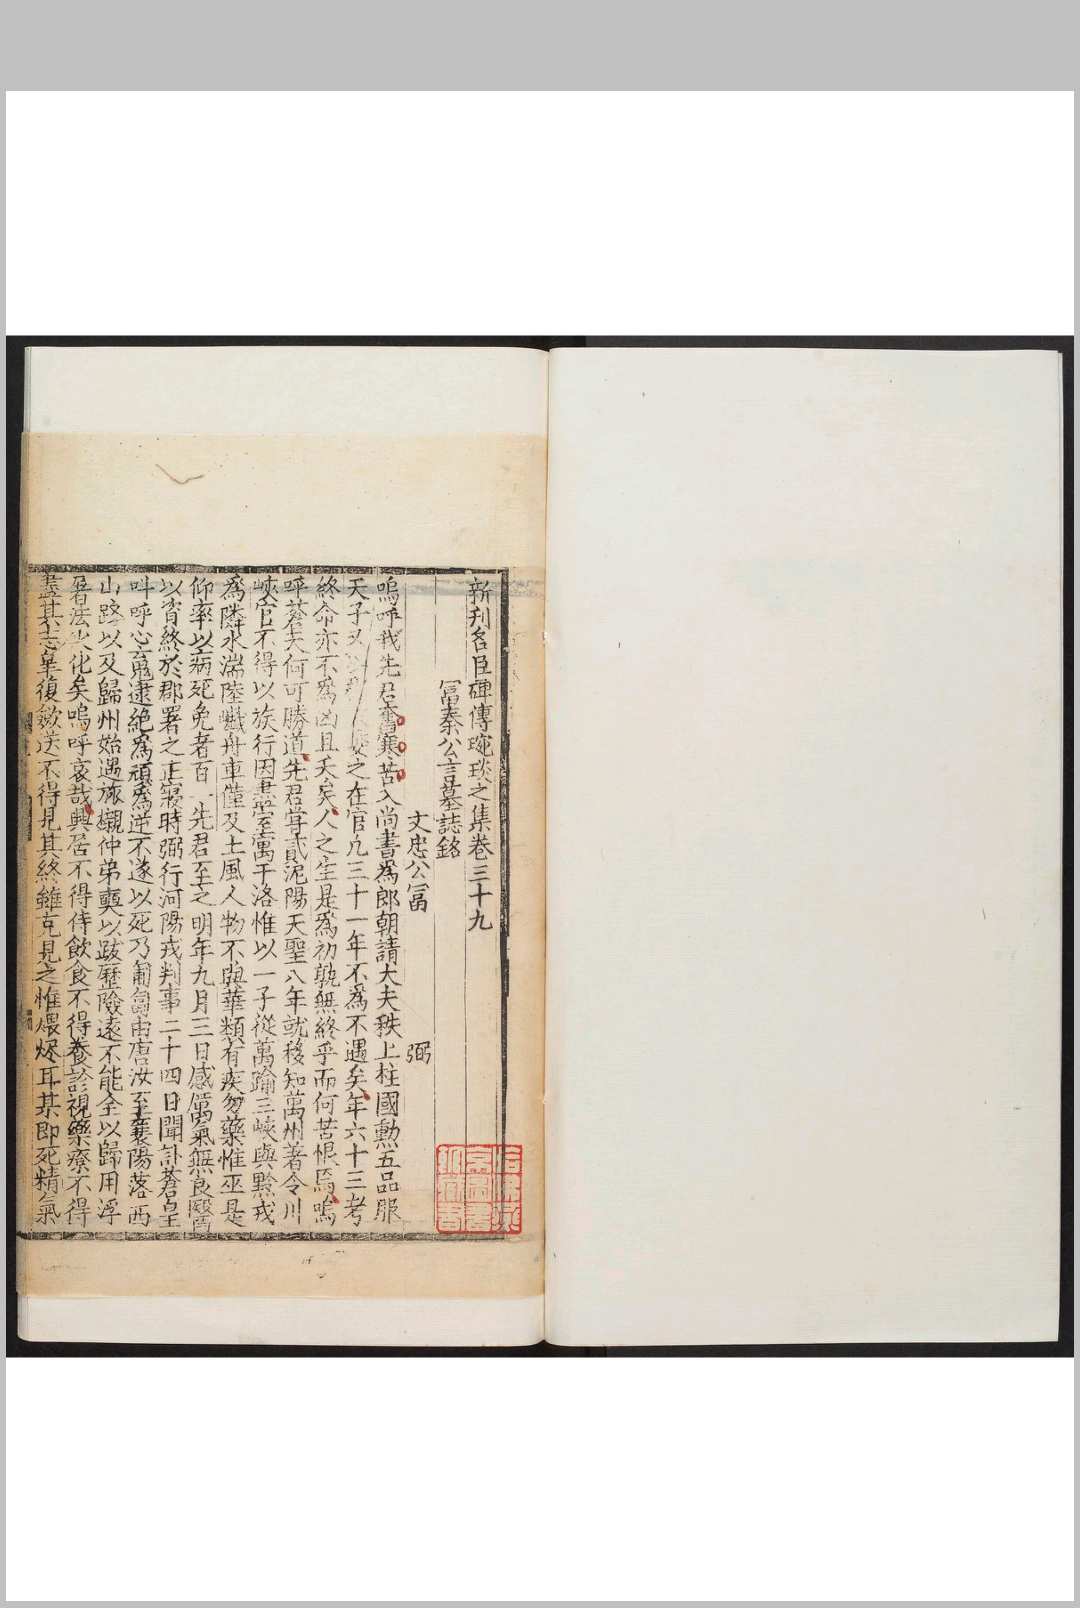 新刋名臣碑傳琬琰之集卷三十九
冨秦公言墓誌銘
文忠公冨　弼
嗚呼我先君奮寒苦入尚書為郎朝請大夫秩上柱國勲五品服
天子又之在官凢三十一年不為不遇矣年六十三考
終命亦不為凶且夭矣人之生是為初孰無終乎而何苦恨焉嗚
呼蒼天何可勝道先君甞貳泥陽天聖八年就移知萬州著令川
峽官不得以族行因盡室寓于洛惟以一子從萬踰三峽與黔戎
為隣水湍陸巇舟車僅及土風人物不與華類有疾勿藥惟巫是
仰率以病死免者百一先君至之明年九月三日感厲氣無良毉
以斉終於郡署之正寢時弼行河陽戎判事二十四日聞訃蒼皇
叫呼心亂逮絶為頑為逆不遂以死乃匍匐由唐汝至襄陽落西
山路以及歸州始遇旅櫬仲弟奭以跋歷險遠不能全以歸用浮
屠法火化矣嗚呼哀哉興居不得侍飲食不得養診視藥療不得
盡其志皐復歛送不得見其終雖克見之惟煨烬耳某即死精氣